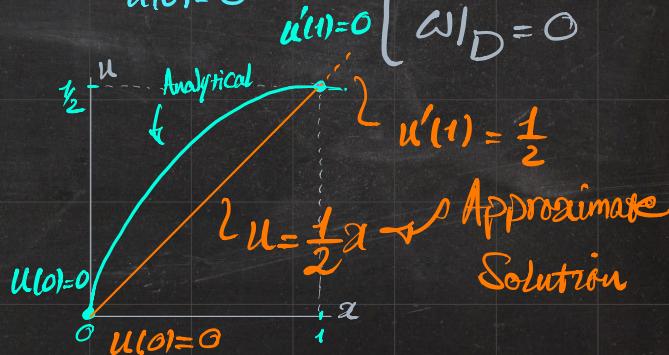 u(0)=0
u'(1)=0
ω|_D = 0
u
1/2
Analytical
u'(1) = 1/2
u = 1/2 x
Approximate
Solution
u(0)=0
x
0
1
u(0)=0